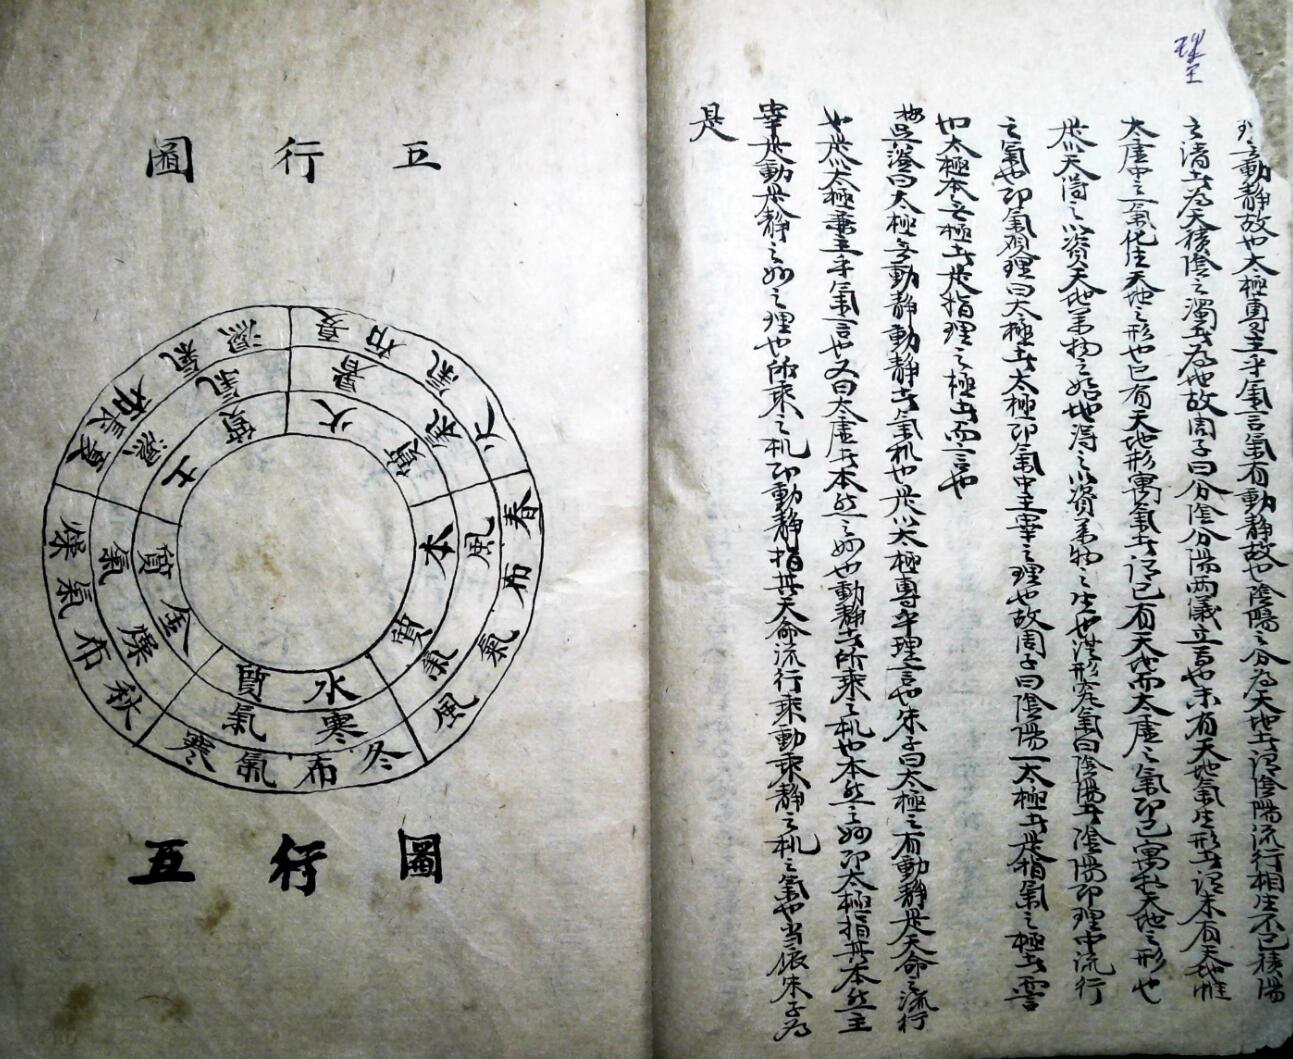 理
之動靜故也太極專主乎氣言氣有動靜故也陰陽之分為天地者謂陰陽流行相生不已積陽
之清者為天積陰之濁者為地故周子曰分陰分陽兩儀立焉也未有天地氣生形者謂未有天地惟
太虛中之一氣化生天地之形也已有天地形寓氣者謂已有天地而太虛之氣即已寓於天地之形也
是以天得之以資天地萬物之始地得之以資萬物之生也形窮氣曰陰陽者陰陽即理中流行
之氣也即氣窮理曰太極者太極即氣中主宰之理也故周子曰陰陽一太極者是指氣之極者而言
也太極本無極者是指理之極者而言也
按吳澄曰太極無動靜動靜者氣机也是以太極專乎理言也朱子曰太極之有動靜是天命之流行
也是以太極兼主乎氣言也又曰太虛者本然之妙也動靜者所乘之机也本然之妙即太極指其本然主
宰是動是靜之妙之理也所乘之机即動靜指其天命流行乘動乘靜之机之氣也当依朱子為
是
五行圖
春布氣風
風氣
木質
夏布氣火
暑氣
火質
長夏布氣濕
濕氣
土質
秋布氣燥
燥氣
金質
冬布氣寒
寒氣
水質
五行圖